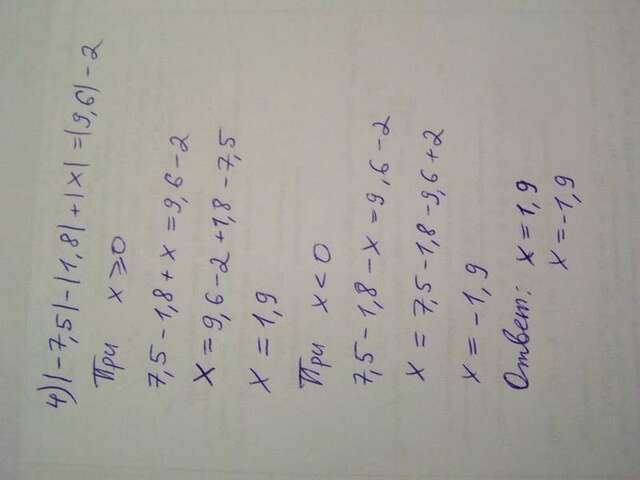 4) |-7,5|-|1,8|+|x|=|9,6|-2
При x ⩾ 0
7,5-1,8+x=9,6-2
x=9,6-2+1,8-7,5
x=1,9
При x<0
7,5-1,8-x=9,6-2
x=7,5-1,8-9,6+2
x=-1,9
Ответ: x=1,9
x=-1,9